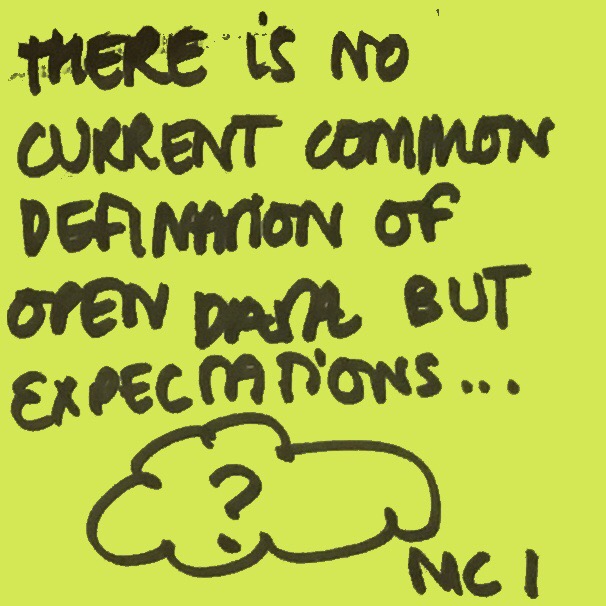 THERE iS NO
CURRENT COMMON
DEFINATION OF
OPEN DATA BUT
EXPECTATiONS...
?
NIC 1